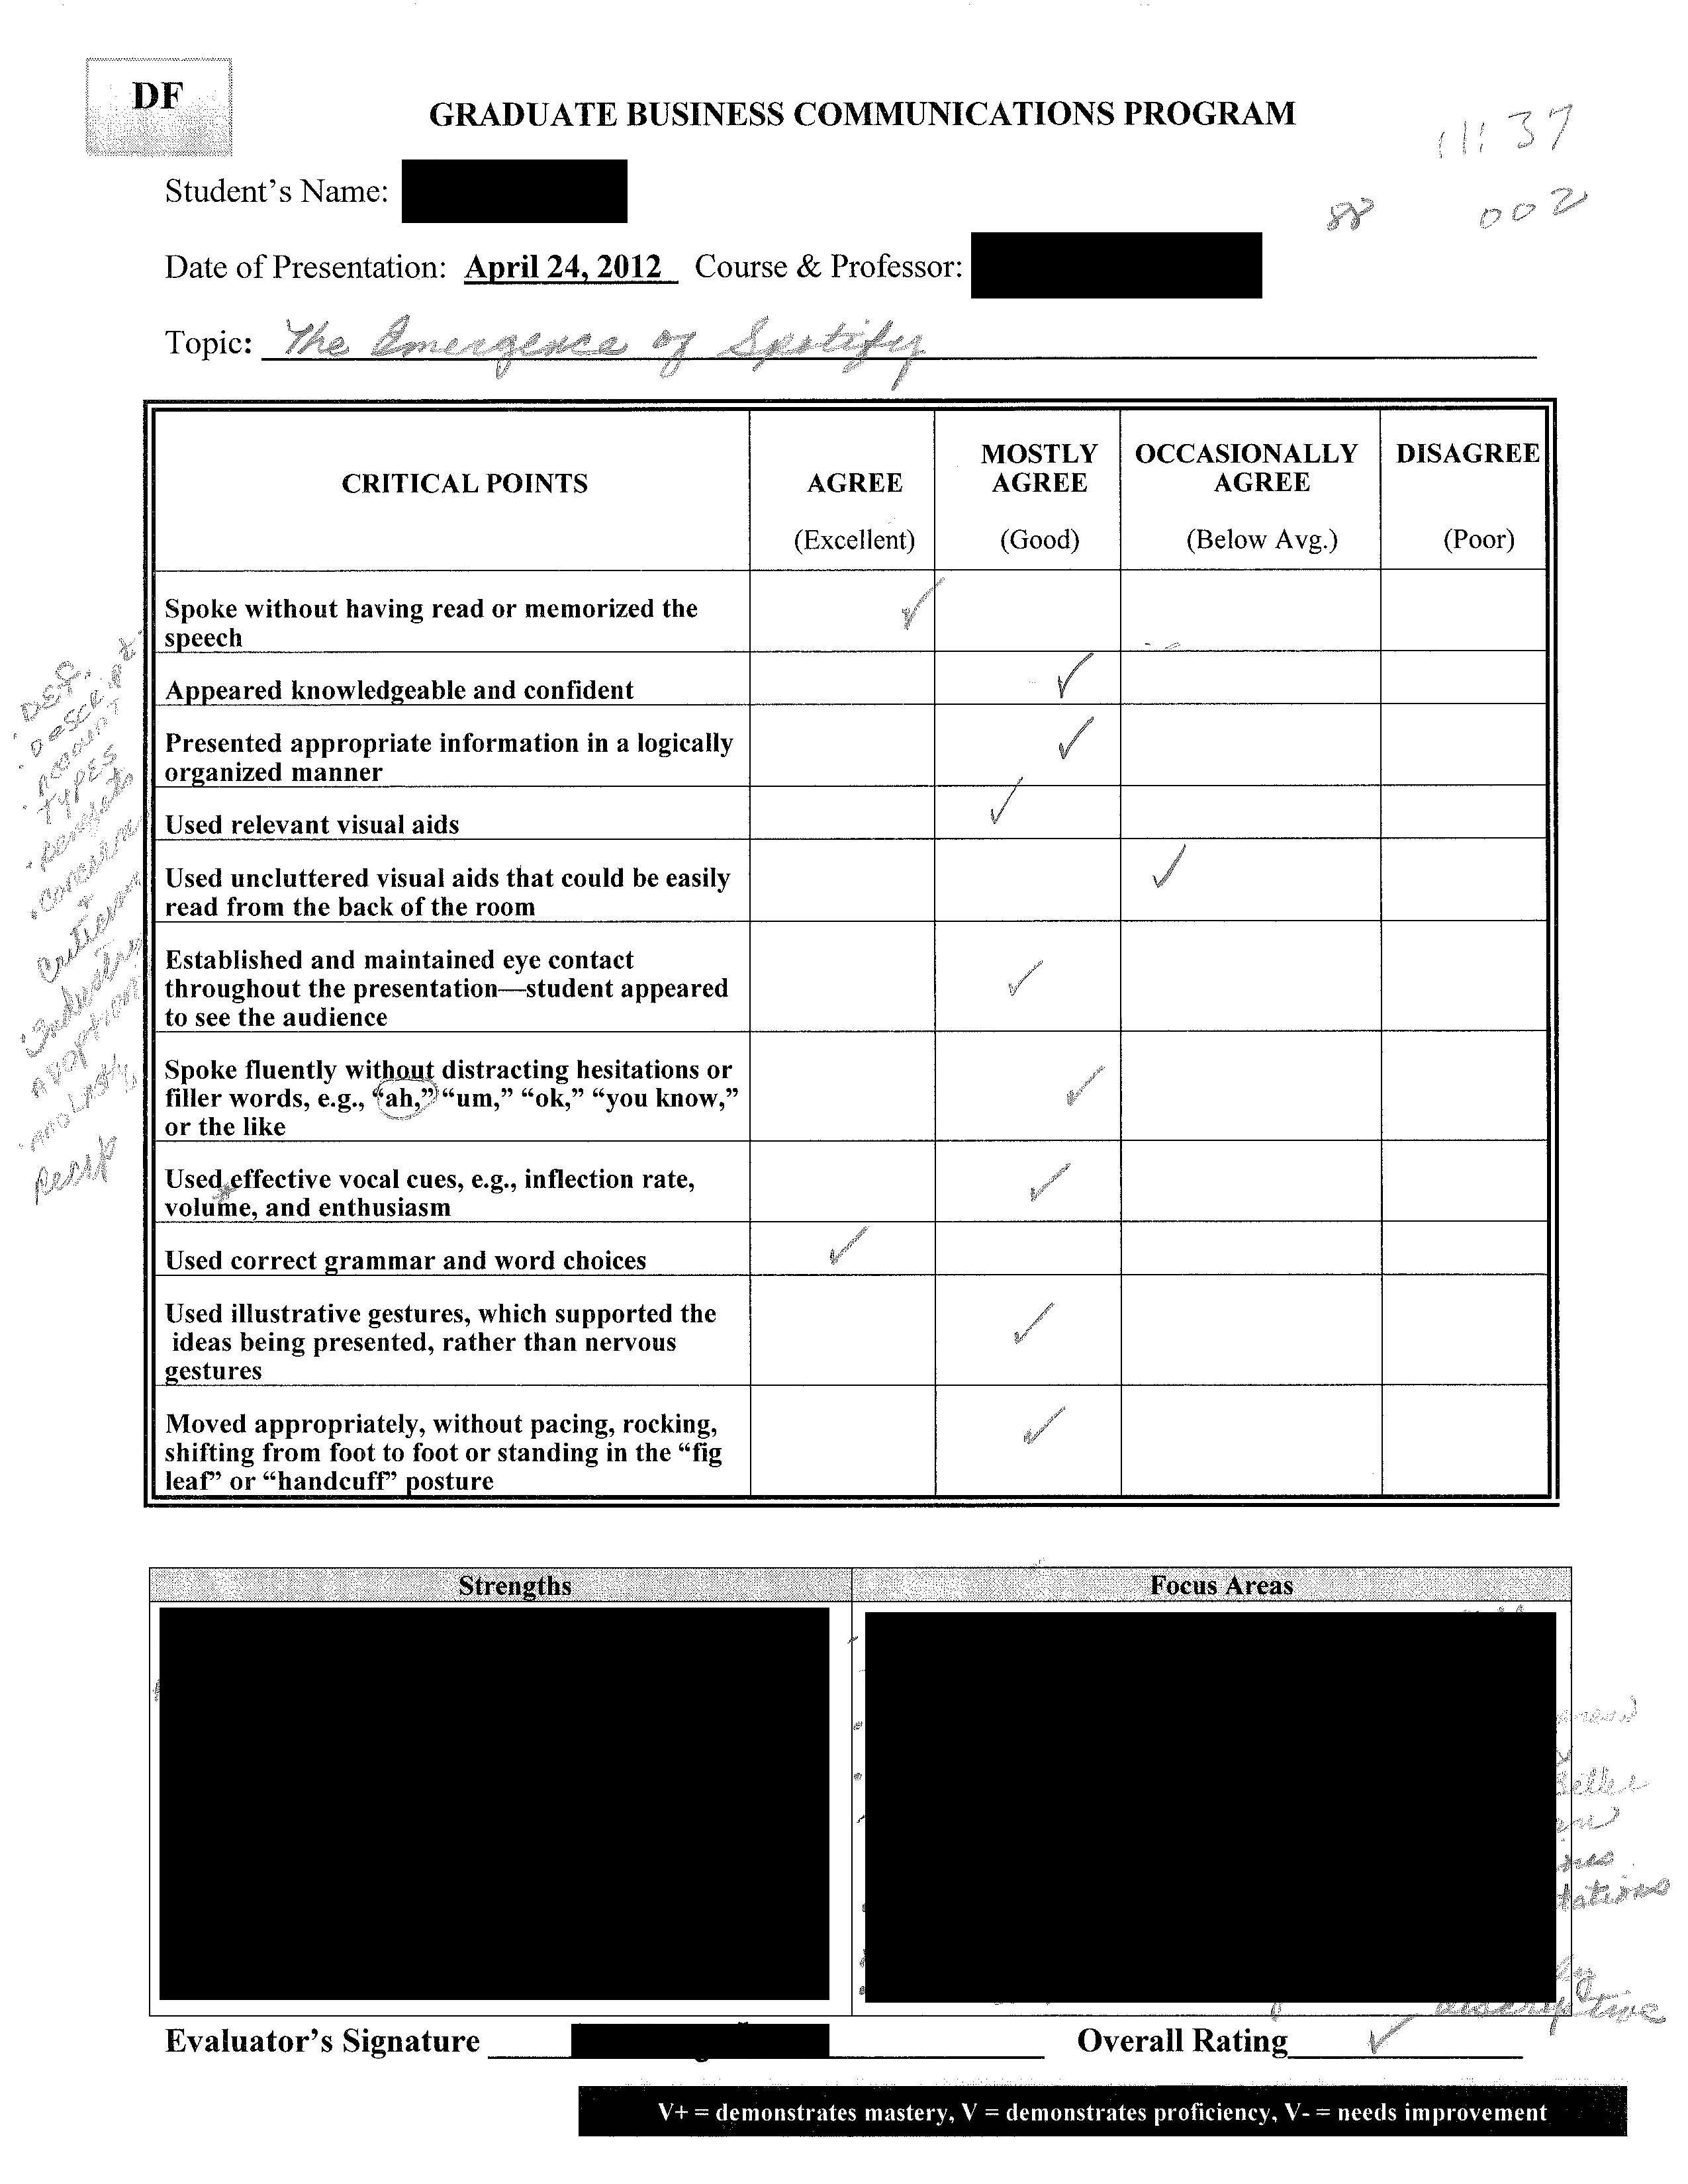 DF
GRADUATE BUSINESS COMMUNICATIONS PROGRAM
11:37
Student's Name:
88 002
Date of Presentation: April 24, 2012 Course & Professor:
Topic: The Emergence of Spotify
CRITICAL POINTS
AGREE
(Excellent)
MOSTLY
AGREE
(Good)
OCCASIONALLY
AGREE
(Below Avg.)
DISAGREE
(Poor)
Spoke without having read or memorized the
speech
Appeared knowledgeable and confident
Presented appropriate information in a logically
organized manner
Used relevant visual aids
Used uncluttered visual aids that could be easily
read from the back of the room
Established and maintained eye contact
throughout the presentation—student appeared
to see the audience
Spoke fluently without distracting hesitations or
filler words, e.g., “ah,” “um,” “ok,” “you know,”
or the like
Used effective vocal cues, e.g., inflection rate,
volume, and enthusiasm
Used correct grammar and word choices
Used illustrative gestures, which supported the
ideas being presented, rather than nervous
gestures
Moved appropriately, without pacing, rocking,
shifting from foot to foot or standing in the “fig
leaf” or “handcuff” posture
DEF.
ACCOUNT
TYPES
Criticism
Industry
ADOPTION
AND LASTLY,
Recap
Strengths
Focus Areas
descriptive
Evaluator's Signature
Overall Rating ✓
V+ = demonstrates mastery, V = demonstrates proficiency, V- = needs improvement